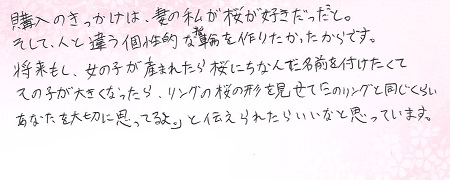 購入のきっかけは、妻の私が桜が好きだったと。
そして、人と違う個性的な指輪を作りたかったからです。
将来もし、女の子が産まれたら桜にちなんだ名前を付けたくて
その子が大きくなったら、リングの桜の形を見せて「このリングと同じくらい
あなたを大切に思ってるよ。」と伝えられたらいいなと思っています。